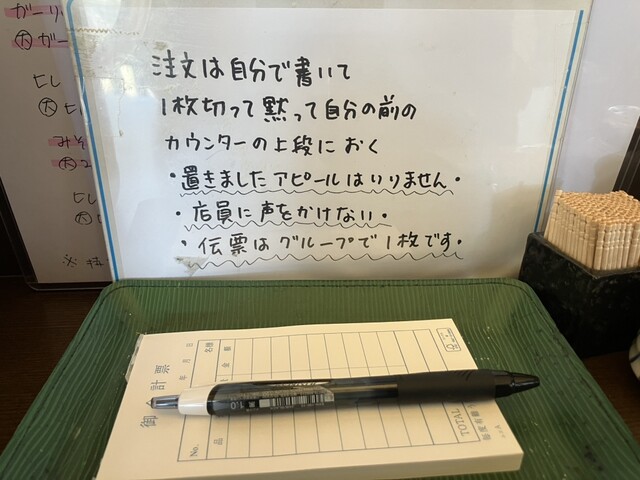 注文は自分で書いて
1枚切って黙って自分の前の
カウンターの上段におく
・置きましたアピールはいりません・
・店員に声をかけない・
・伝票はグループで1枚です・
ガーリ
大ガー
ヒレ
大ヒ
みそ
ヒレ
大
※
御計票
年 月 日
名様
No.
品
金額
TOTAL
1.0